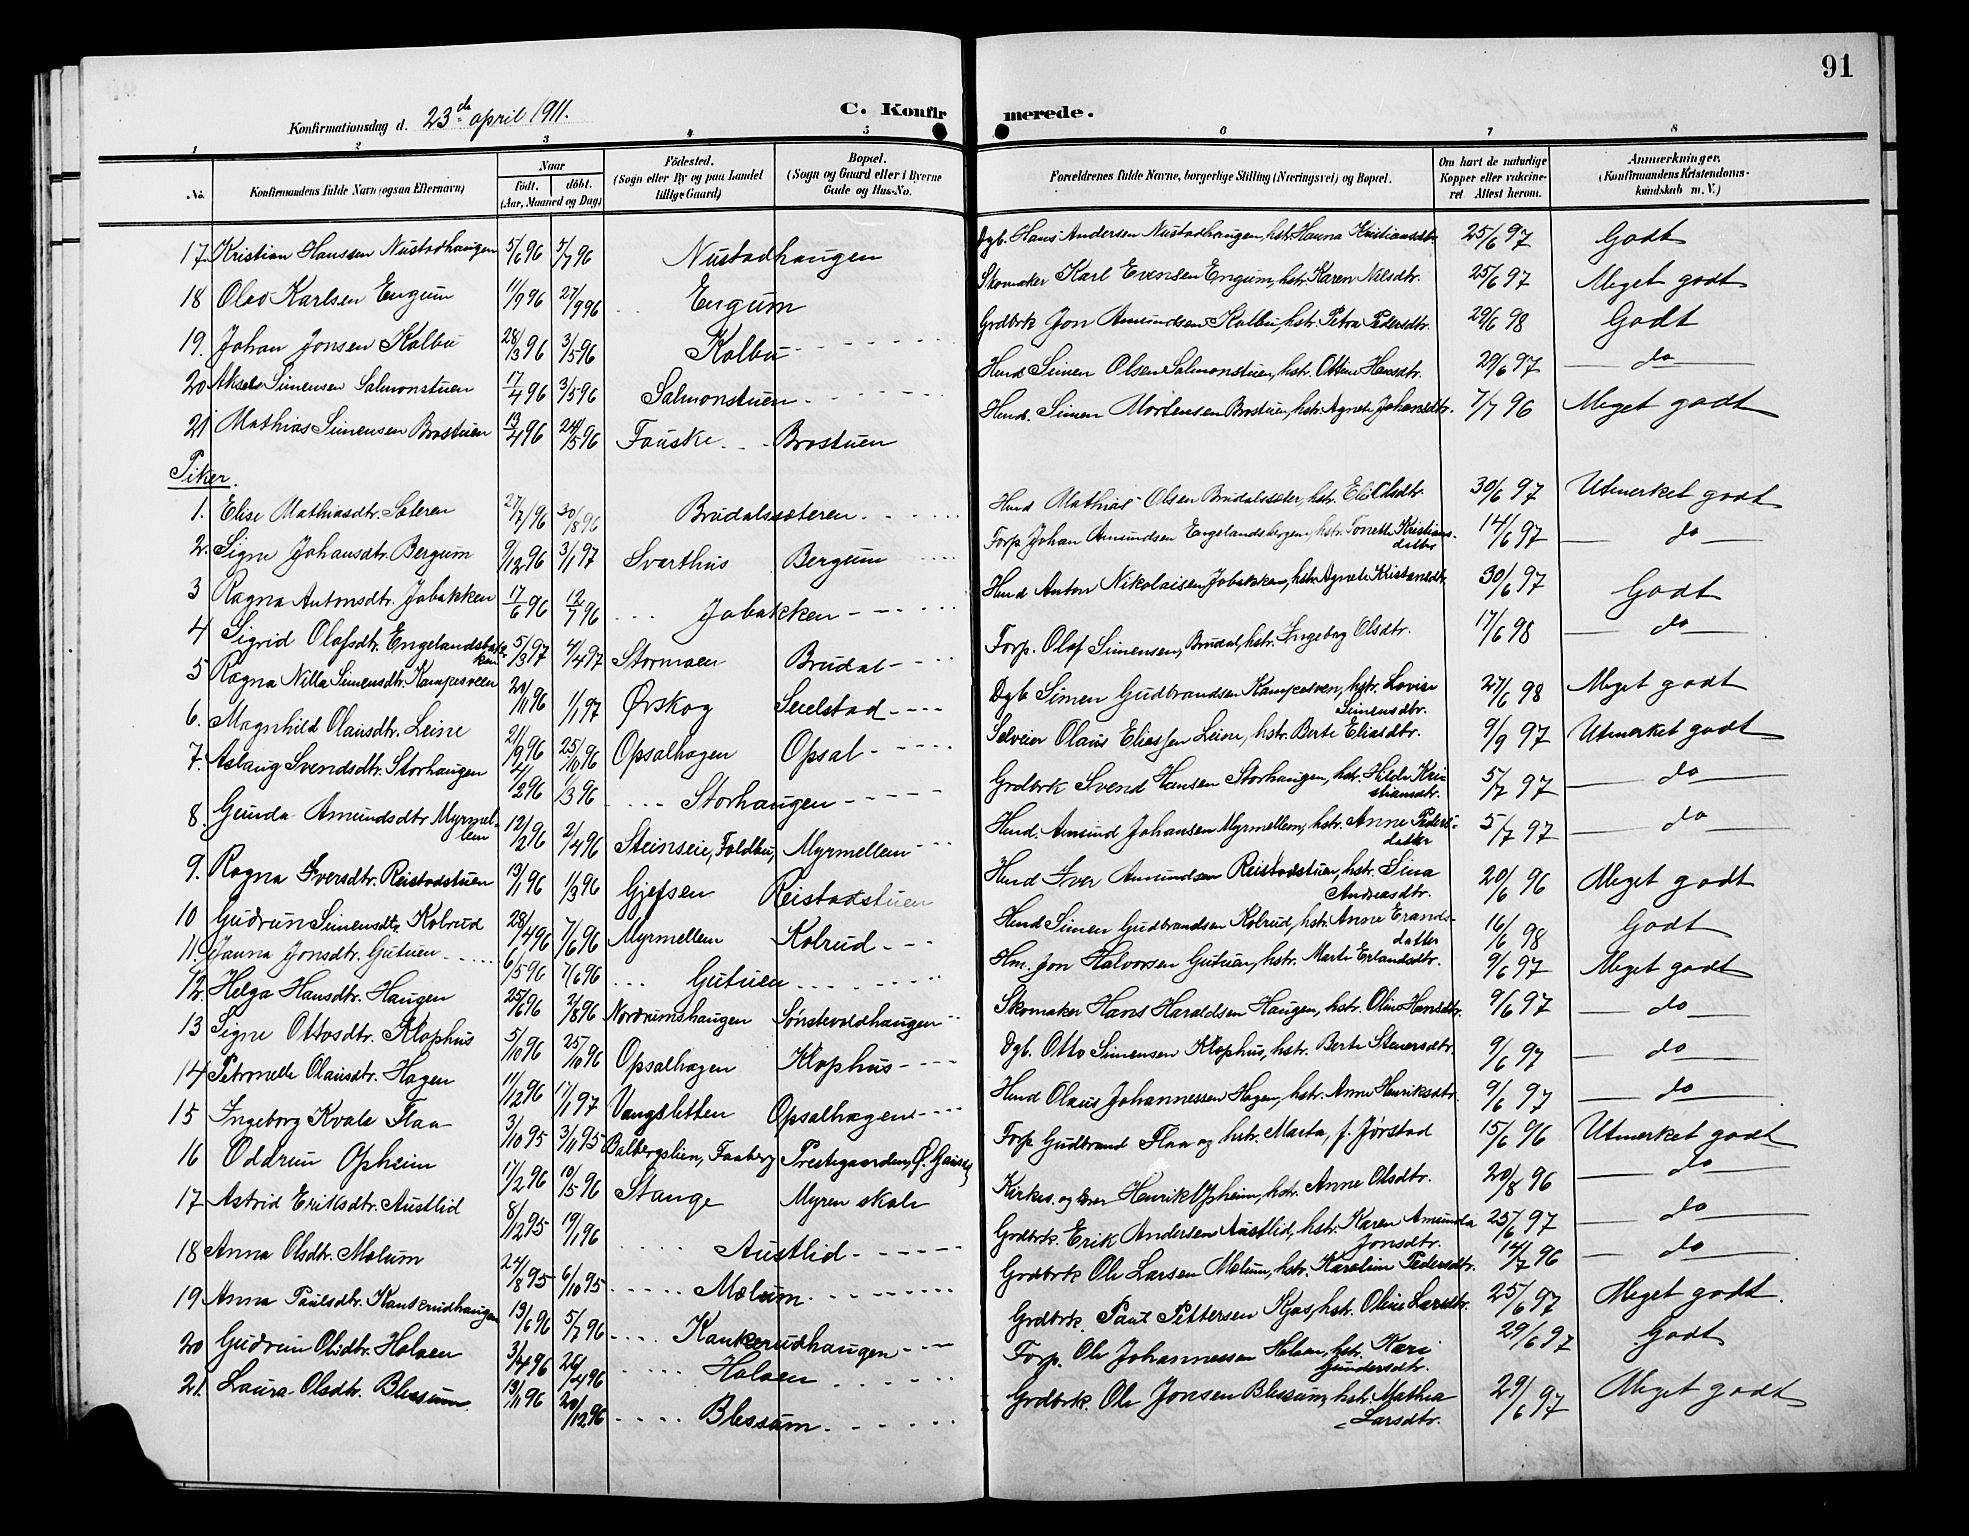 91
Konfirmationsdag d. 23de april 1911.
C. Konfirmerede.
1 2 3 4 5 6 7 8
No. Konfirmandens fulde Navn (ogsaa Efternavn) Naar födt. döbt. (Aar, Maaned og Dag) Födested. (Sogn eller By og paa Landet tillige Gaard) Bopæl. (Sogn og Gaard eller i Byerne Gade og Hus-No. Forældrenes fulde Navne, borgerlige Stilling (Næringsvei) og Bopæl. Om havt de naturlige Kopper eller vaccineret Attest herom. Anmærkninger, (Konfirmandens Kristendomskundskab m. V.)
17. Kristian Hanssen Nustadhaugen 5/6 96 5/7 96 Nustadhaugen Dgb. Hans Andersen Nustadhaugen, hstr. Hanna Kristiansdtr. 25/6 97 Godt
18 Olav Karlsen Engum 11/9 96 27/9 96 Engum Skomaker Karl Evensen Engum, hstr. Karen Nilsdtr. 25/6 97 Meget godt
19. Johan Jonsen Kolbu 28/3 96 3/5 96 Kolbu Grdbrk Jon Amundsen Kolbu, hstr. Petra Pedersdtr. 29/6 98 Godt
20 Aksel Simensen Salmonstuen 17/4 96 3/5 96 Salmonstuen Husd. Simen Olsen Salmonstuen, hstr. Ottine Hansdtr. 29/6 97 do
21 Mathias Simensen Brostuen 13/4 96 24/5 96 Fauske Brostuen Husd. Simen Mortensen Brostuen, hstr. Agnete Johansdtr. 7/7 96 Meget godt
Piker.
1. Elise Mathiasdtr. Sæteren 27/7 96 30/8 96 Brudalssæteren Husd Mathias Olsen Brudalssæter, hstr. Eli Olsdtr 30/6 97 Utmerket godt
2. Signe Johansdtr. Bergum 9/12 96 3/1 97 Svarthus Bergum Forp. Johan Amundsen Engelandsbergen, hstr. Tonette Kristiansdatter 14/6 97 do
3 Ragna Antonsdtr. Jobakken 17/6 96 12/7 96 Jobakken Husd Anton Nikolaisen Jobakken, hstr. Agnete Kristansdtr. 30/6 97 Godt
4 Sigrid Olafsdtr. Engelandsbakken 5/3 97 4/4 97 Stormoen Brudal Forp. Olaf Simensen, Brudal, hstr. Ingeborg Olsdtr. 17/6 98 do
5 Ragna Nilla Simensdtr. Kampesveen 20/11 96 1/1 97 Ørskog Seielstad Dgb Simen Gudbrandsen Kampesven, hstr. Lovise Simensdtr. 27/6 98 Meget godt
6. Magnhild Olausdtr. Leine 21/9 96 25/10 96 Opsalhagen Opsal Selveier Olaus Eliassen Leine, hstr. Berte Eliasdtr. 9/9 97 Utmerket godt
7. Aslaug Svendsdtr. Storhaugen 4/2 96 1/3 96 Storhaugen Grdbrk Svend Hansen Storhaugen, hstr. Hilda Kristiansdtr. 5/7 97 do
8. Gunda Amundsdtr Myrmellem 12/2 96 2/4 96 Steinseie, Foldbu, Myrmellem Husd. Amund Johansen Myrmellem, hstr. Anne Pedersdatter 5/7 97 do
9. Ragna Iversdtr. Reistadstuen 13/1 96 1/3 96 Gjefsen Reistadstuen Husd Iver Amundsen Reistadstuen, hstr. Sina Andreasdtr. 20/6 96 Meget godt
10 Gudrun Simensdtr. Kolrud 28/4 96 7/6 96 Myrmellem Kolrud Husd Simen Gudbrandsen Kolrud, hstr. Anne Erandsdatter 16/6 98 Godt
11. Janna Jonsdtr. Gutuen 6/5 96 7/6 96 Gutuen Hm. Jon Halvorsen Gutuen, hstr. Marte Erlandsdtr. 9/6 97 Meget godt
12. Helga Hansdtr. Haugen 25/6 96 2/8 96 Nordrumshaugen Sønstevoldhaugen Skomaker Hans Haraldsen Haugen, hstr. Oline Hansdtr. 9/6 97 do
13 Signe Ottosdtr. Klophus 5/10 96 25/10 96 Opsalhagen Klophus Dgb. Otto Simensen Klophus, hstr. Berte Steuersdtr. 9/6 97 do
14 Petronelle Olausdtr. Hagen 11/12 96 17/1 97 Vangsletten Opsalhagen Husd Olaus Johannessen Hagen, hstr. Anne Henriksdtr. 9/6 97 do
15 Ingeborg Kvale Flaa 3/10 95 3/11 95 Balbergslien, Faaberg Prestegaarden, Ø. Gausdal Forp Gudbrand Flaa og hstr. Marta, f. Jørstad 15/6 96 Utmerket godt
16 Oddrun Opheim 17/2 96 10/5 96 Stange Myren skole Kirkes. og lærer Henrik Opheim, hstr. Anne Olsdtr. 20/8 96 do
17 Astrid Eriksdtr. Austlid 8/12 95 19/1 96 Austlid Grdbrk. Erik Andersen Austlid, hstr. Karen Amunda Jonsdtr. 25/6 97 do
18 Anna Olsdtr. Mælum 24/8 95 6/10 95 Mælum Grdbrk Ole Larsen Mælum, hstr. Karoline Pedersdtr. 14/7 96 do
19 Anna Paulsdtr. Kankerudhaugen 13/6 96 5/7 96 Kankerudhaugen Grdbrk. Paul Pettersen Kjos, hstr. Oline Larsdtr. 25/6 97 Meget godt.
20 Gudrun Olsdtr. Holoen 3/4 96 26/4 96 Holoen Forp. Ole Johannessen Holoen, hstr. Kari Gundersdtr. 29/6 97 Godt
21. Laura Olsdtr. Blessum. 13/11 96 20/12 96 Blessum Grdbrk. Ole Jonsen Blessum, hstr. Mathea Larsdtr. 29/6 97 Meget godt